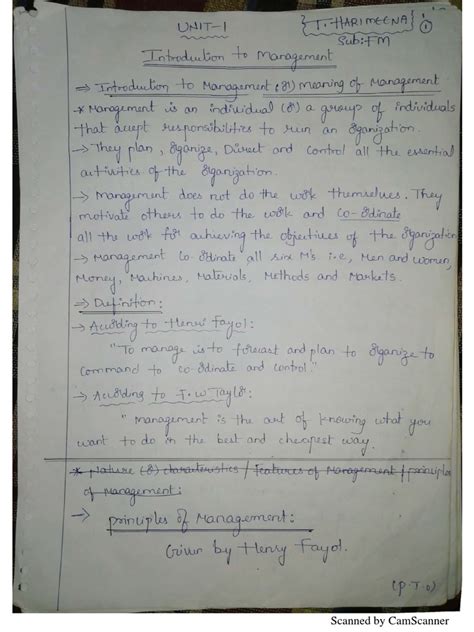 UNIT-1
T. HARIMEENA
①
Sub: FM
Introduction to Management
⇒ Introduction to Management (or) meaning of Management
* Management is an individual (or) a group of individuals
that accept responsibilities to run an organization.
→ They plan, organize, Direct and control all the essential
activities of the organization.
→ Management does not do the work themselves. They
motivate others to do the work and co-ordinate
all the work for achieving the objectives of the organization
→ Management co-ordinate all six M's i.e, Men and women,
Money, Machines, Materials, Methods and Markets.
⇒ Definition:
→ According to Henri Fayol:
"To manage is to forecast and plan to organize to
command to co-ordinate and control."
→ According to F.W Taylor:
"Management is the art of knowing what you
want to do in the best and cheapest way.
* Nature (or) characteristics / Features of Management / principles
of Management:
→ principles of Management:
Given by Henry Fayol.
(P.T.O)
Scanned by CamScanner